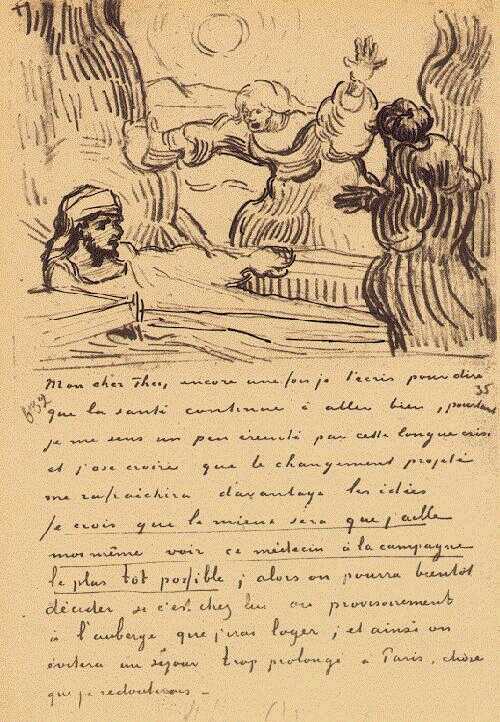 Mon cher Theo, encore une fois je t'écris pour dire
35
632
que la santé continue à aller bien, pourtant
je me sens un peu éreinté par cette longue crise
et j'ose croire que le changement projeté
me rafraichira davantage les idées
Je crois que le mieux sera que j'aille
moi même voir ce médecin à la campagne
le plus tôt possible ; alors on pourra bientôt
décider si c'est chez lui ou provisoirement
à l'auberge que j'irai loger ; et ainsi on
évitera un séjour trop prolongé à Paris, chose
que je redouterais —